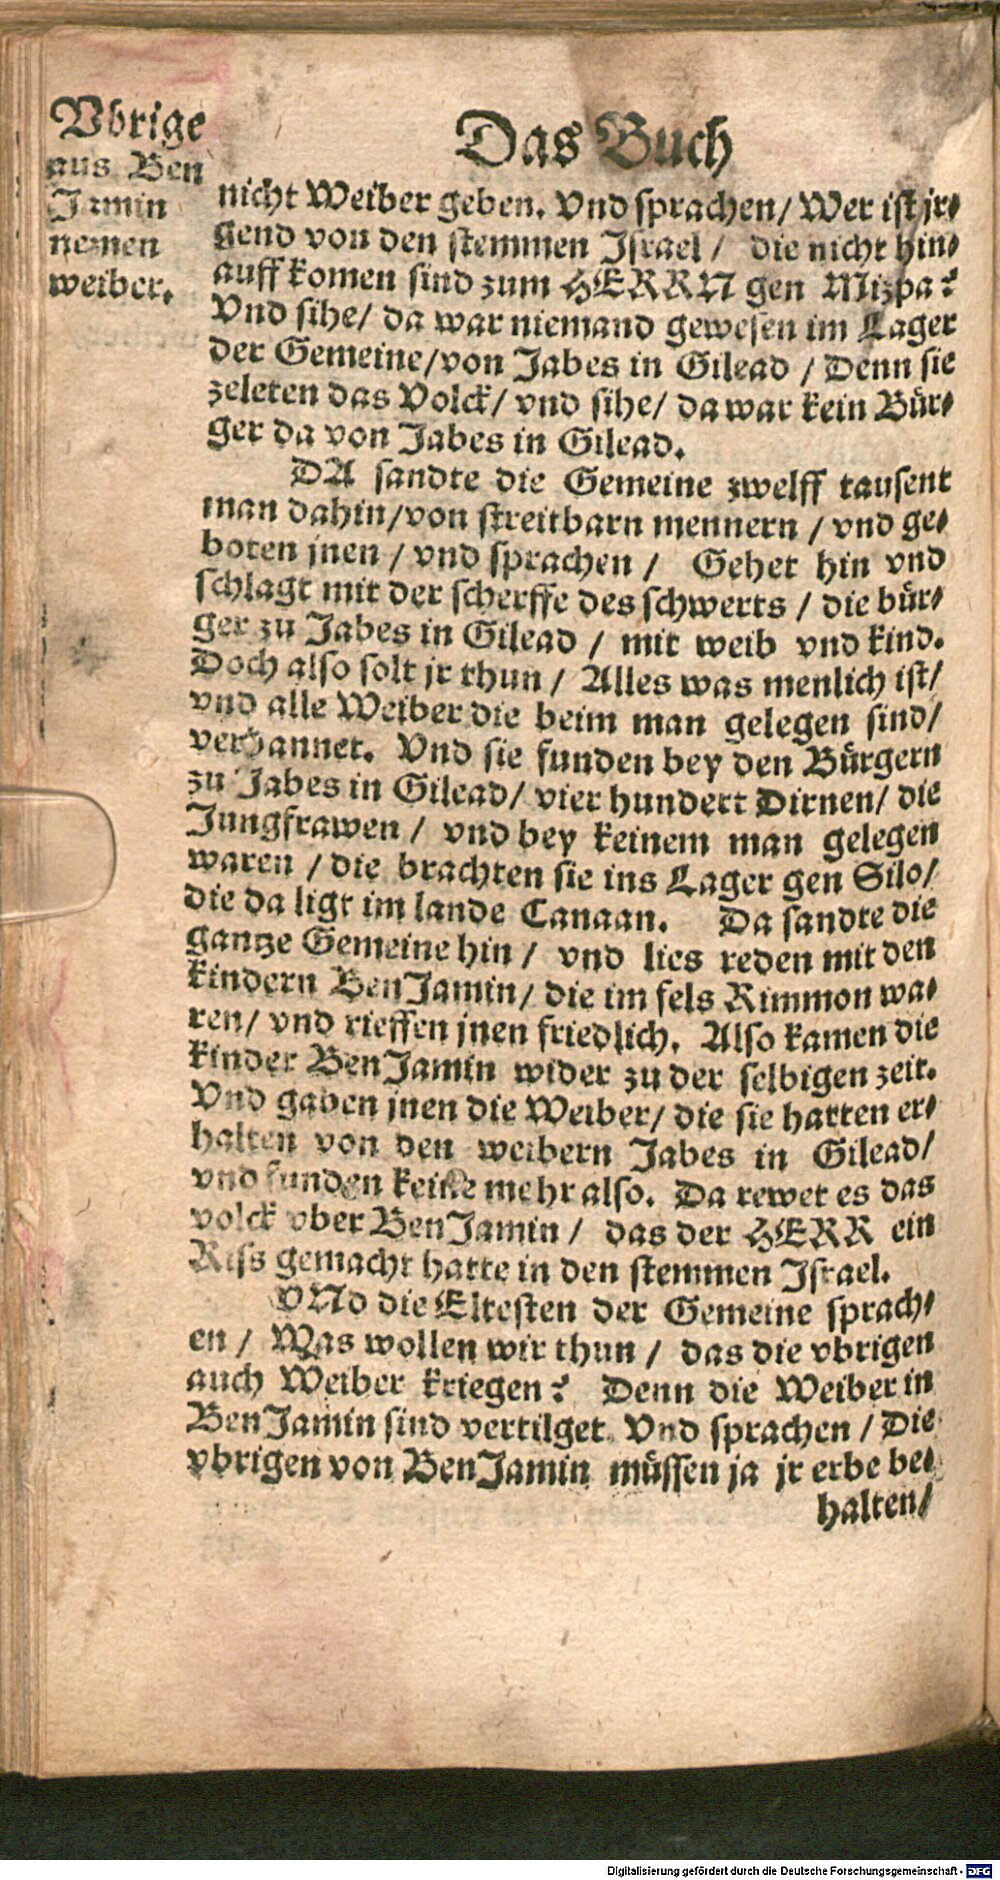 Das Buch
Vbrige
aus Ben
Jamin
nemen
weiber.
nicht Weiber geben. Vnd sprachen/ Wer ist jr⸗
gend von den stemmen Israel / die nicht hin⸗
auff komen sind zum HERRN gen Mizpa?
Vnd sihe/ da war niemand gewesen im Lager
der Gemeine/von Jabes in Gilead / Denn sie
zeleten das Volck/ vnd sihe/ da war kein Bür⸗
ger da von Jabes in Gilead.
DA sandte die Gemeine zwelff tausent
man dahin/von streitbarn mennern / vnd ge⸗
boten jnen / vnd sprachen / Gehet hin vnd
schlagt mit der scherffe des schwerts / die bür⸗
ger zu Jabes in Gilead / mit weib vnd kind.
Doch also solt jr thun / Alles was menlich ist/
vnd alle Weiber die beim man gelegen sind/
verbannet. Vnd sie funden bey den Bürgern
zu Jabes in Gilead/ vier hundert Dirnen/ die
Jungfrawen / vnd bey keinem man gelegen
waren / die brachten sie ins Lager gen Silo/
die da ligt im lande Canaan. Da sandte die
gantze Gemeine hin / vnd lies reden mit den
kindern BenJamin/ die im fels Rimmon wa⸗
ren/ vnd rieffen jnen friedlich. Also kamen die
kinder BenJamin wider zu der selbigen zeit.
Vnd gaben jnen die Weiber/ die sie hatten er⸗
halten von den weibern Jabes in Gilead/
vnd funden keine mehr also. Da rewet es das
volck vber BenJamin / das der HERR ein
Riss gemacht hatte in den stemmen Israel.
VNd die Eltesten der Gemeine sprach⸗
en / Was wollen wir thun / das die vbrigen
auch Weiber kriegen? Denn die Weiber in
BenJamin sind vertilget. Vnd sprachen / Die
vbrigen von BenJamin müssen ja jr erbe be⸗
halten/
Digitalisierung gefördert durch die Deutsche Forschungsgemeinschaft - DFG